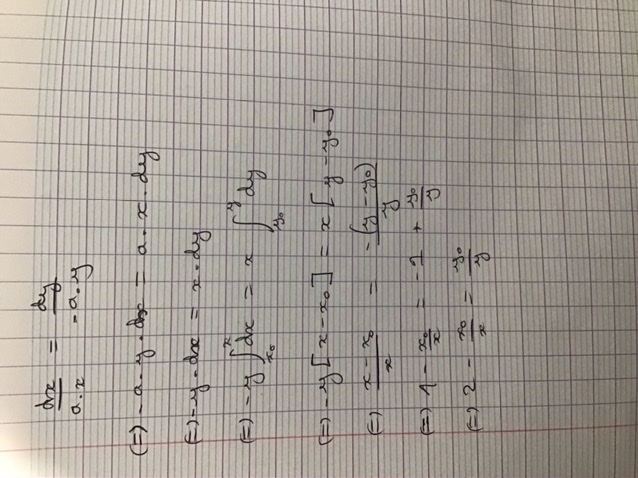 dx/a.x = dy/-a.y
(=) -a.y.dx = a.x.dy
(=) -y.dx = x.dy
(=) -y ∫_{x₀}^{x} dx = x ∫_{y₀}^{y} dy
(=) -y[x-x₀] = x[y-y₀]
(=) x-x₀/x = -(y-y₀)/y
(=) 1 - x₀/x = -1 + y₀/y
(=) 2 - x₀/x = y₀/y